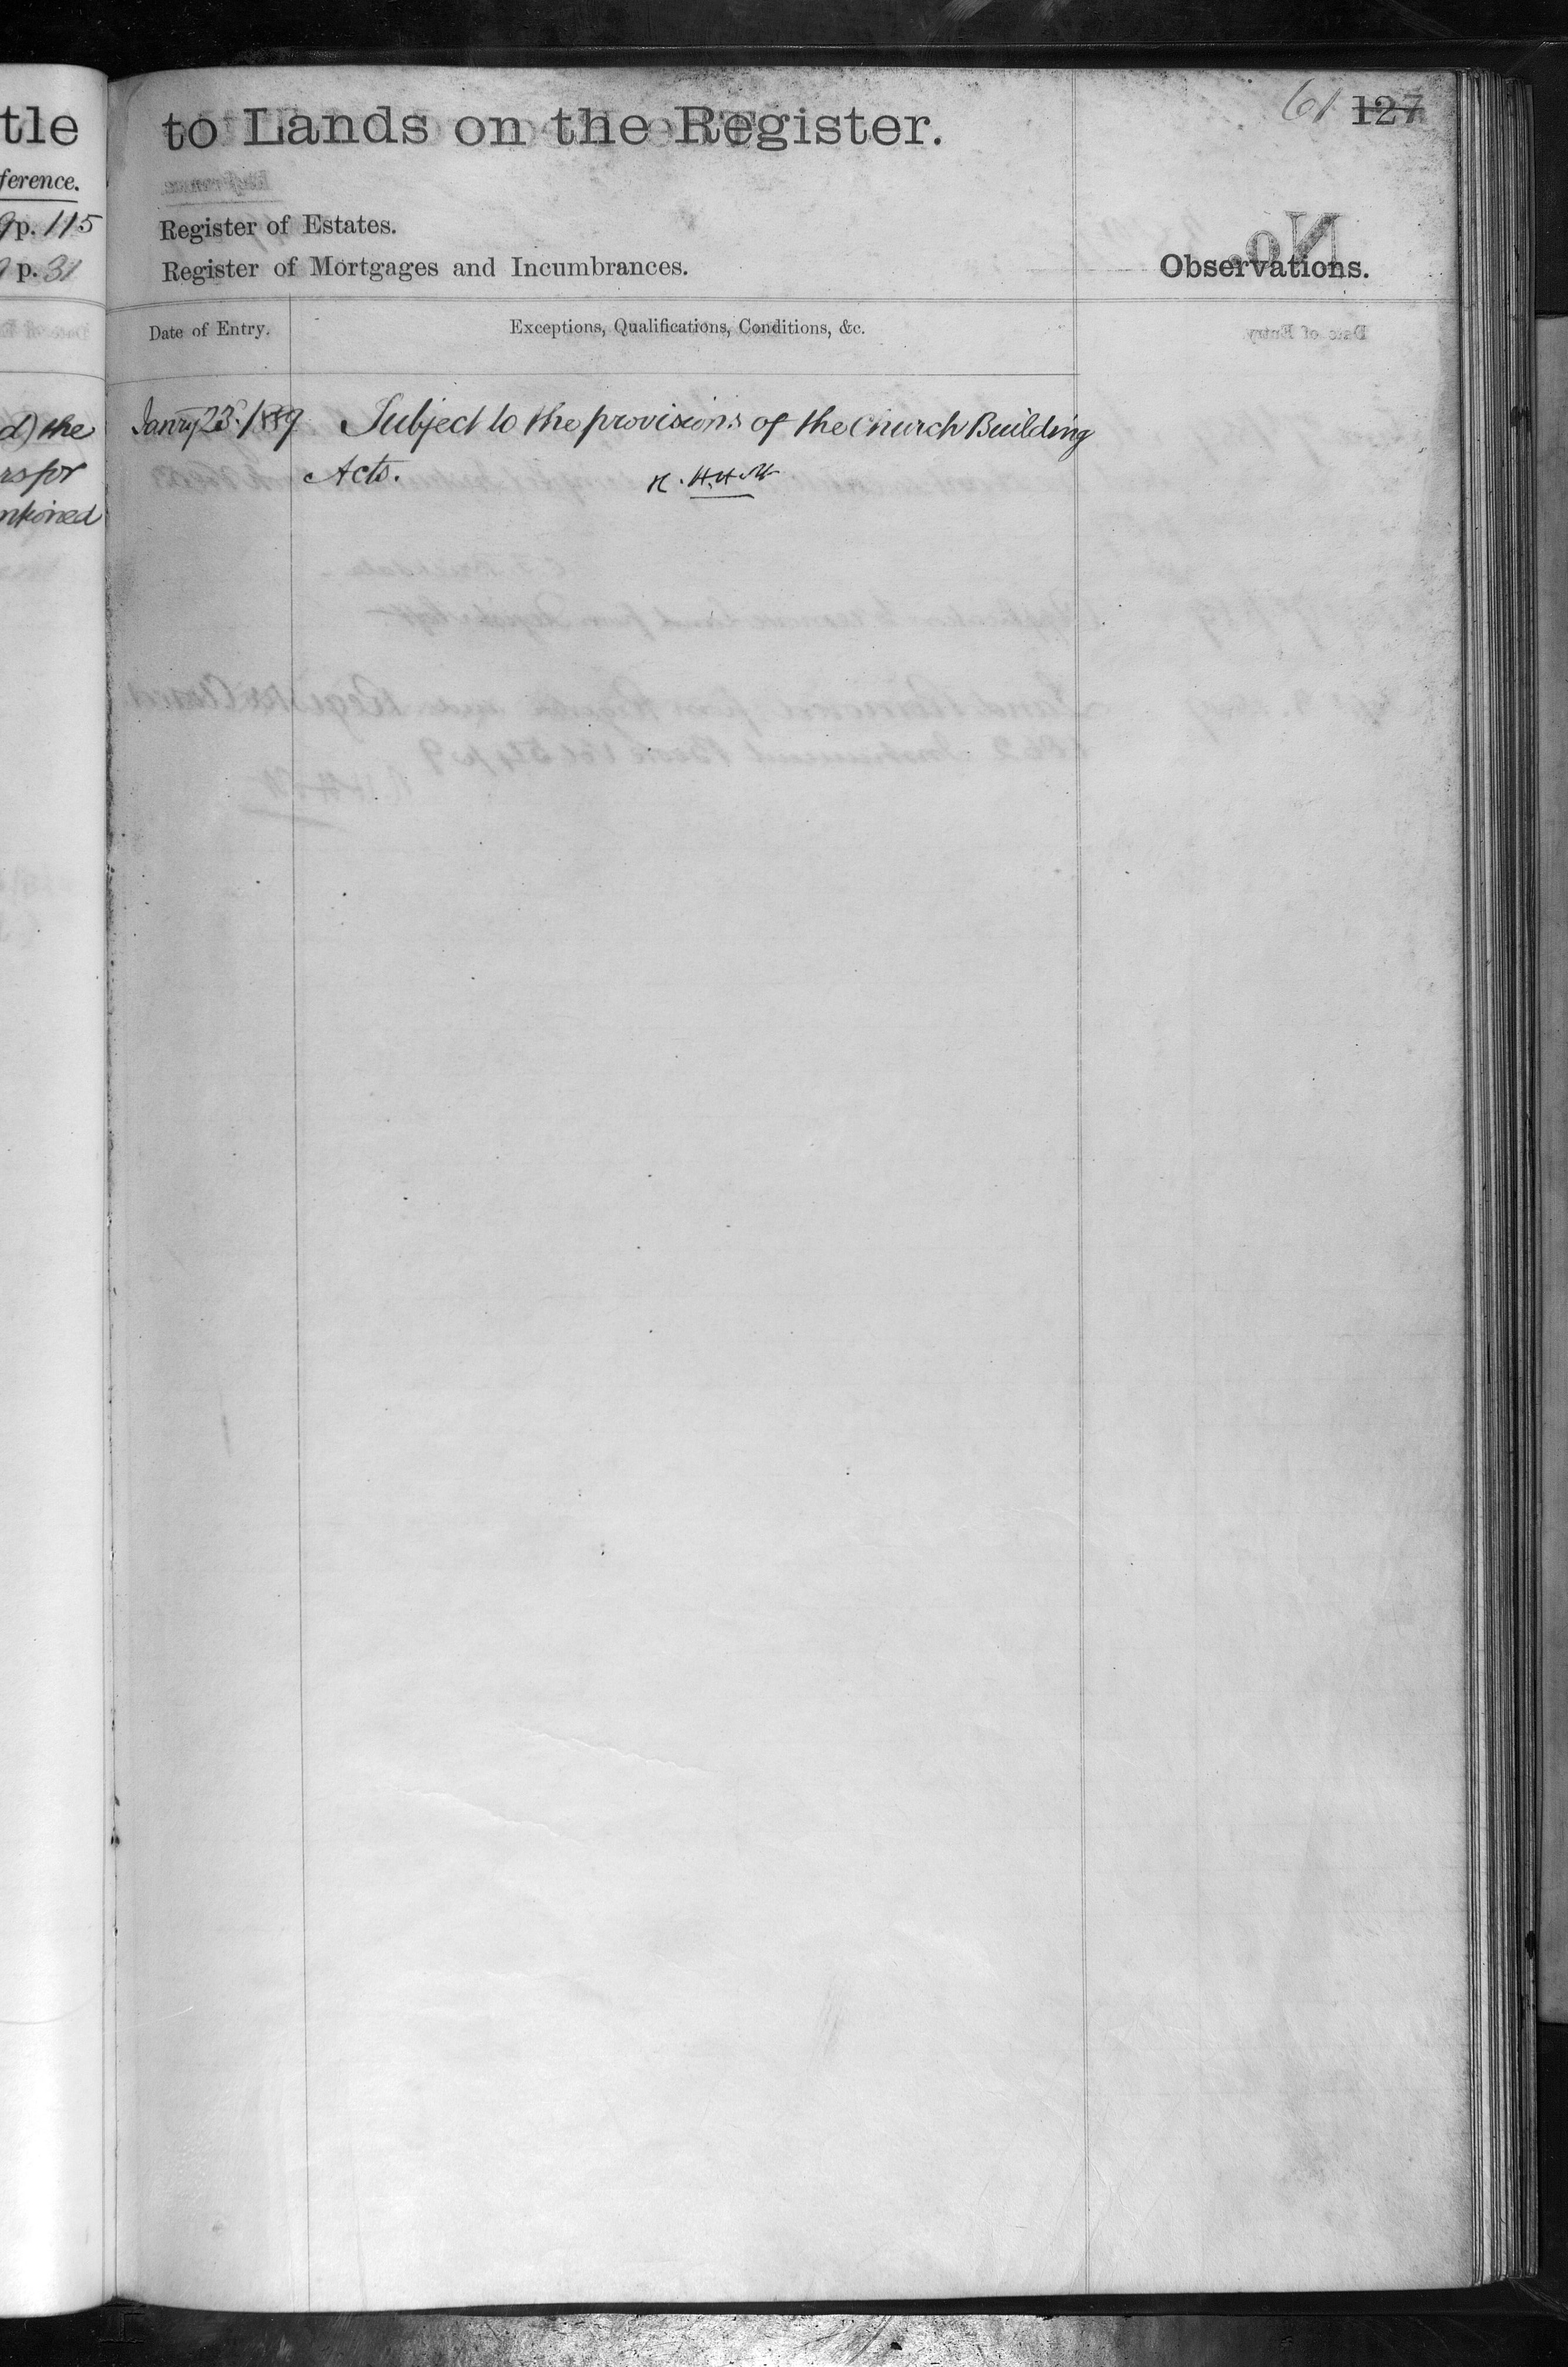 tle
ference.
p. 115
p. 31
d) the
rs for
ntioned
to Lands on the Register.
61 127
Register of Estates.
Register of Mortgages and Incumbrances.
Observations.
Date of Entry.
Exceptions, Qualifications, Conditions, &c.
Janry 23. 1889 Subject to the provisions of the Church Building
Acts.